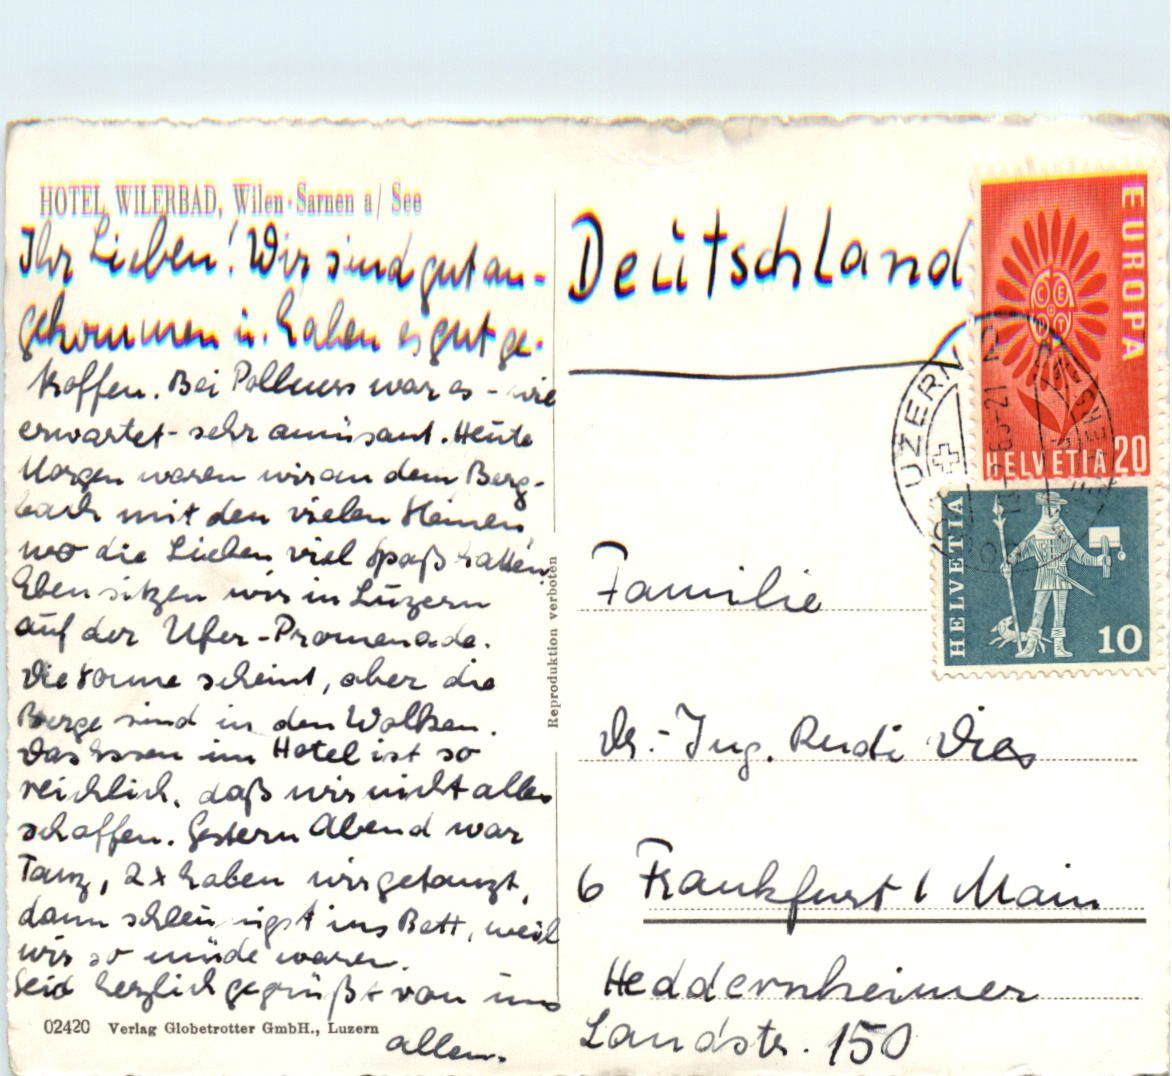 HOTEL WILERBAD, Wilen-Sarnen a/ See
Ihr Lieben! Wir sind gut an-
gekommen u. haben es gut ge-
troffen. Bei war es - wie
erwartet - sehr amüsant. Heute
Morgen waren wir an dem Berg-
bach mit den vielen Steinen,
wo die Lieben viel Spaß hatten.
Eben sitzen wir in Luzern
auf der Ufer-Promenade.
Die Sonne scheint, aber die
Berge sind in den Wolken.
Das Essen im Hotel ist so
reichlich, daß wir nicht alles
schaffen. Gestern Abend war
Tanz, 2x haben wir getanzt,
dann schleunigst ins Bett, weil
wir so müde waren.
Seid herzlich gegrüßt von uns
allen.
02420 Verlag Globetrotter GmbH., Luzern
Reproduktion verboten
Deutschland
EUROPA
CEPT
HELVETIA 20
HELVETIA
10
LUZERN
Familie
Dr.-Ing. Rudi Dies
6 Frankfurt / Main
Heddernheimer
Landstr. 150